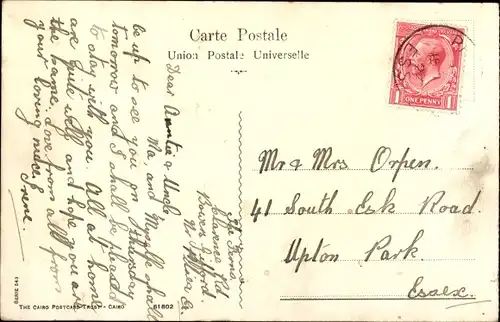 Carte Postale
Union Postale Universelle
Dear Auntie & Uncle,
Ma and Myself shall
be up to see you on Thursday
tomorrow and I shall be pleased
to stay with you. All at home
are quite well and hope you are
the same. Love from all from
your loving niece
Irene.
The Ferns
Clarence Rd
Bowers Gifford.
Mr & Mrs Orpen.
41 South Esk Road.
Upton Park.
Essex.
ONE PENNY
1 1
SERIE 541
THE CAIRO POSTCARD TRUST - CAIRO
61802